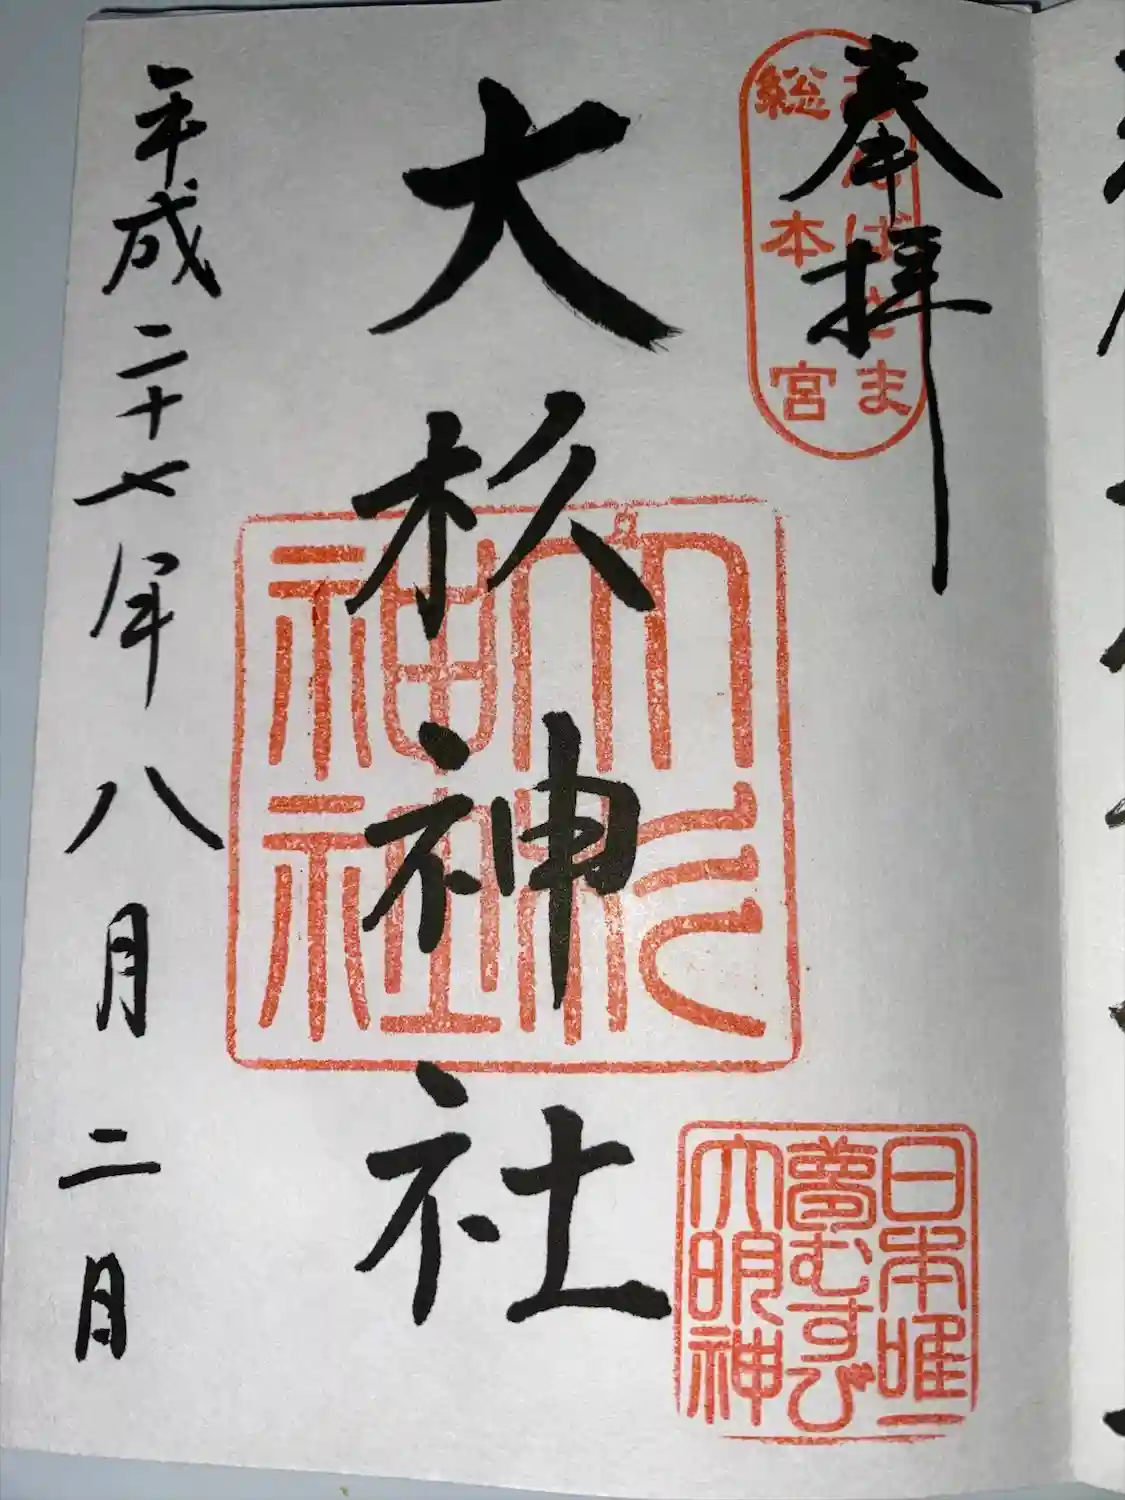 奉拝
あんばさま
総本宮
大杦神社
大杉神社
日本唯一
夢むすび
大明神
平成二十七年八月二日